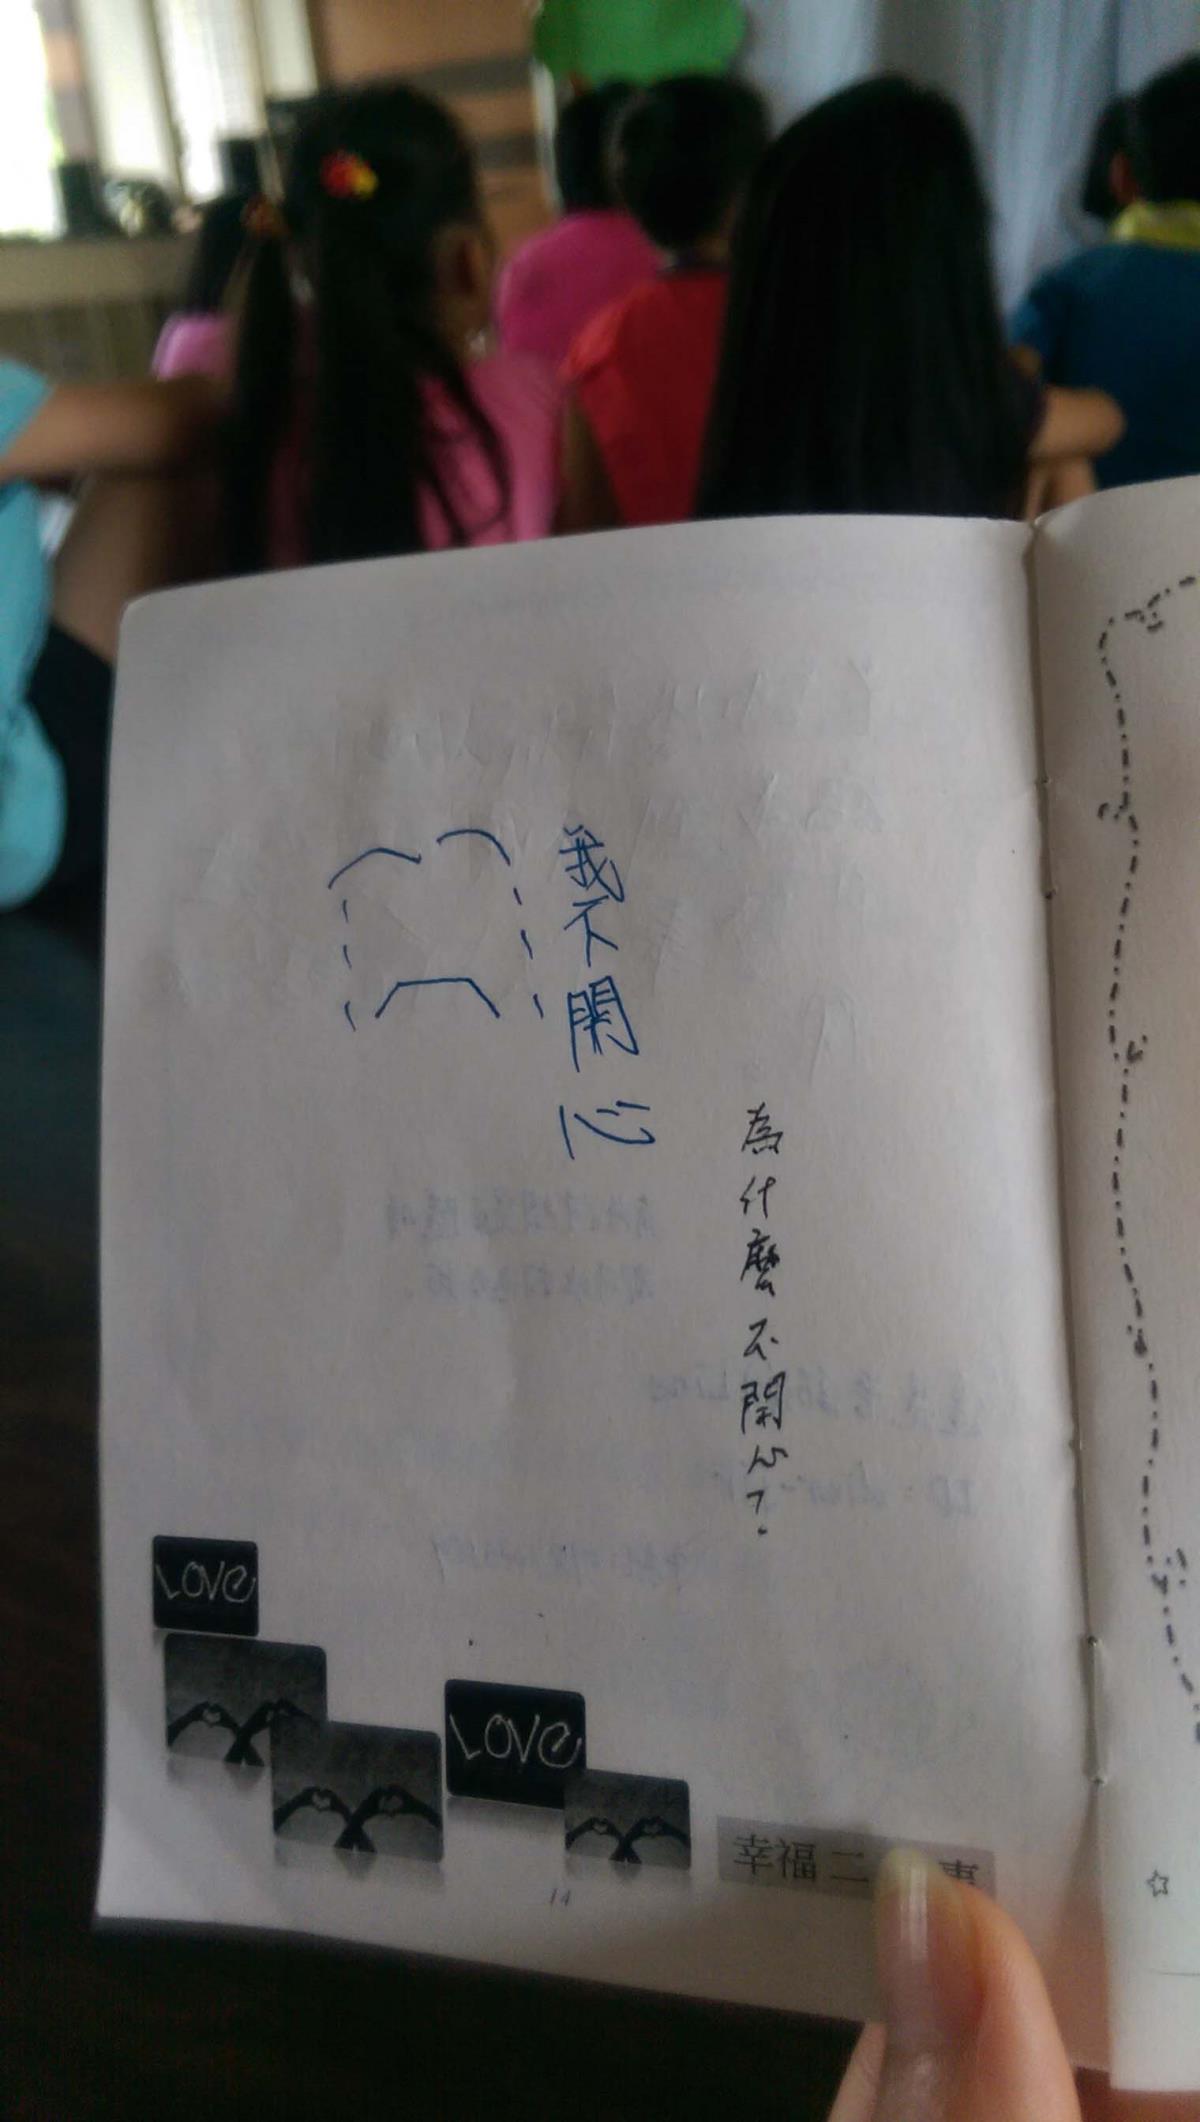 為什麼不開心?
我不開心
LOVe
LOVe
幸福二
14